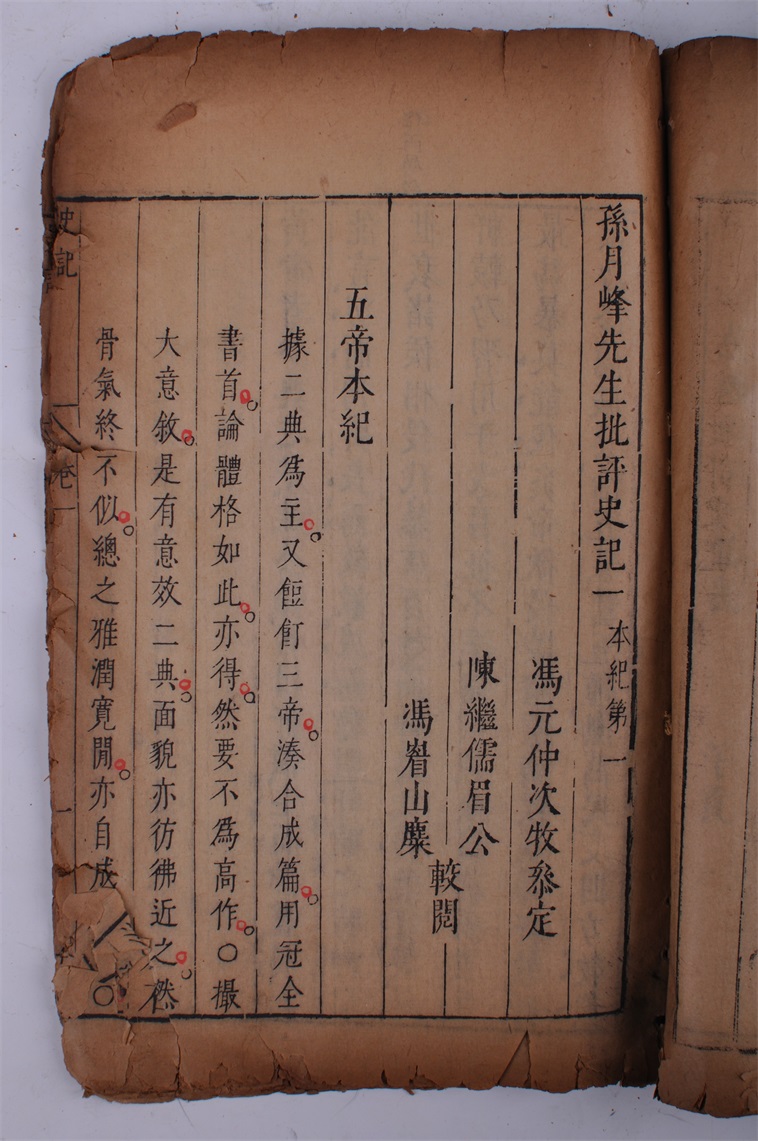 孫月峰先生批評史記一 本紀第一
馮元仲次牧叅定
陳繼儒眉公
馮眘山麋
較閱
五帝本紀
據二典爲主又飣餖三帝湊合成篇用冠全
書首論體格如此亦得然要不爲高作○撮
大意敘是有意效二典面貌亦彷彿近之然
骨氣終不似總之雅潤寛閒亦自成○
史記
卷一
一